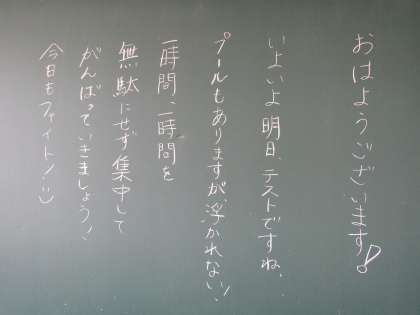 おはようございます!
いよいよ明日、テストですね。
プールもありますが、浮かれない!!
一時間、一時間を
無駄にせず集中して
がんばっていきましょう!
今日もファイト!:)